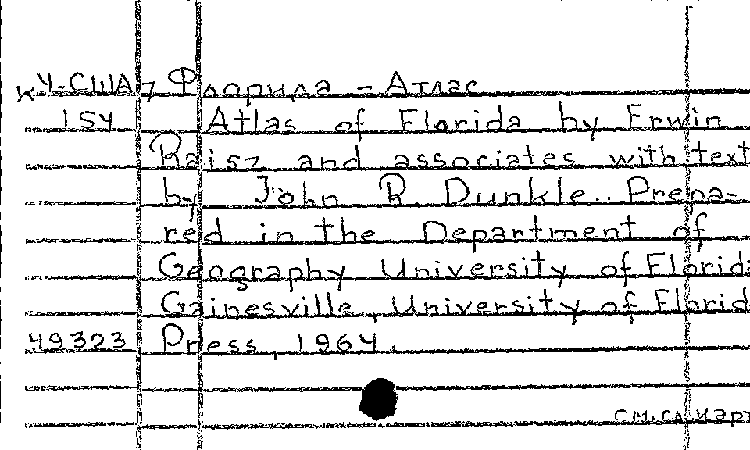 КУ-США Флорида - Атлас
154 Atlas of Florida by Erwin
Raisz and associates with text
by John R. Dunkle.. Prepa-
red in the Department of
Geography University of Florida
Gainesville, University of Florid
49323 Press, 1964.
см.сл.карт